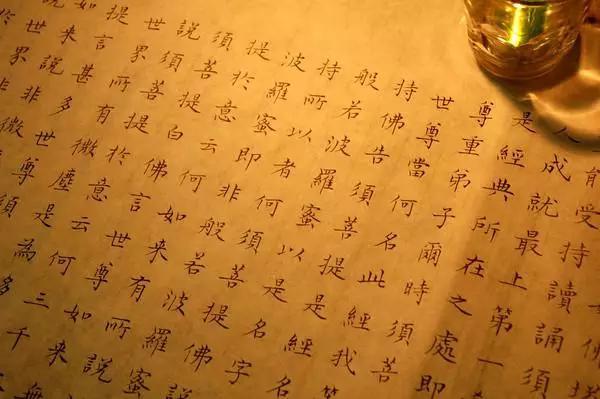 有受持讀誦須
人成就最上第一
是經典所在之處即
尊重弟子爾時須菩
世尊當何名此經我
持佛告須菩提是經名
般若波羅蜜以是名字
持所以者何須菩提佛說
波羅蜜即非般若波羅蜜
提於意云何如來有所說
須菩提白佛言世尊如來
說須菩提於意云何三千
世界所有微塵是為多
提言甚多世尊須
如來說非微
於世界